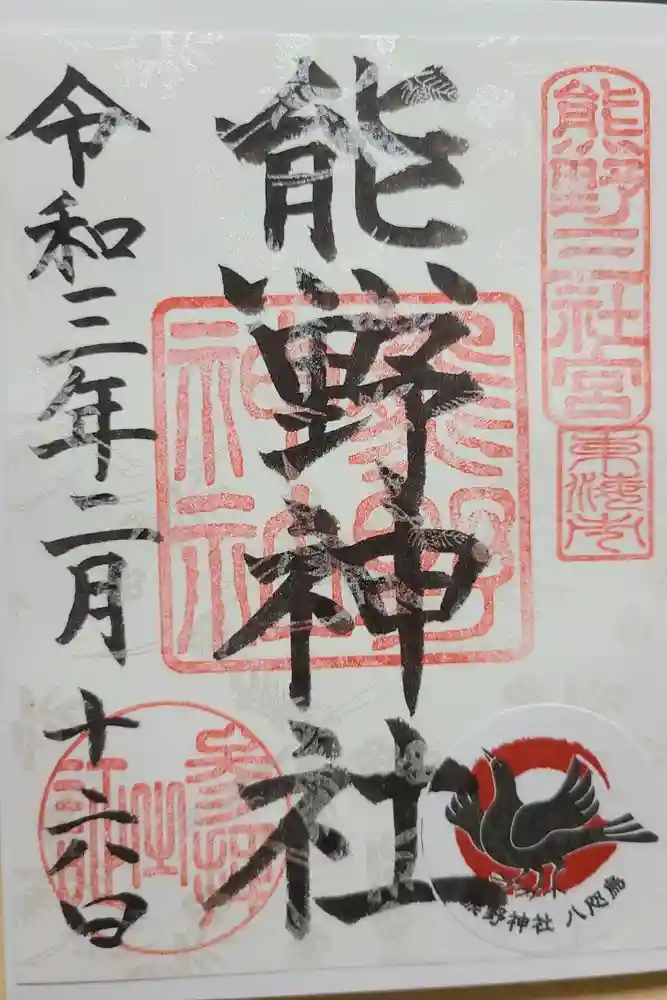 熊野三社宮
東海市
熊野神社
熊野神社
令和三年二月十六日
参拝
熊野神社 八咫烏